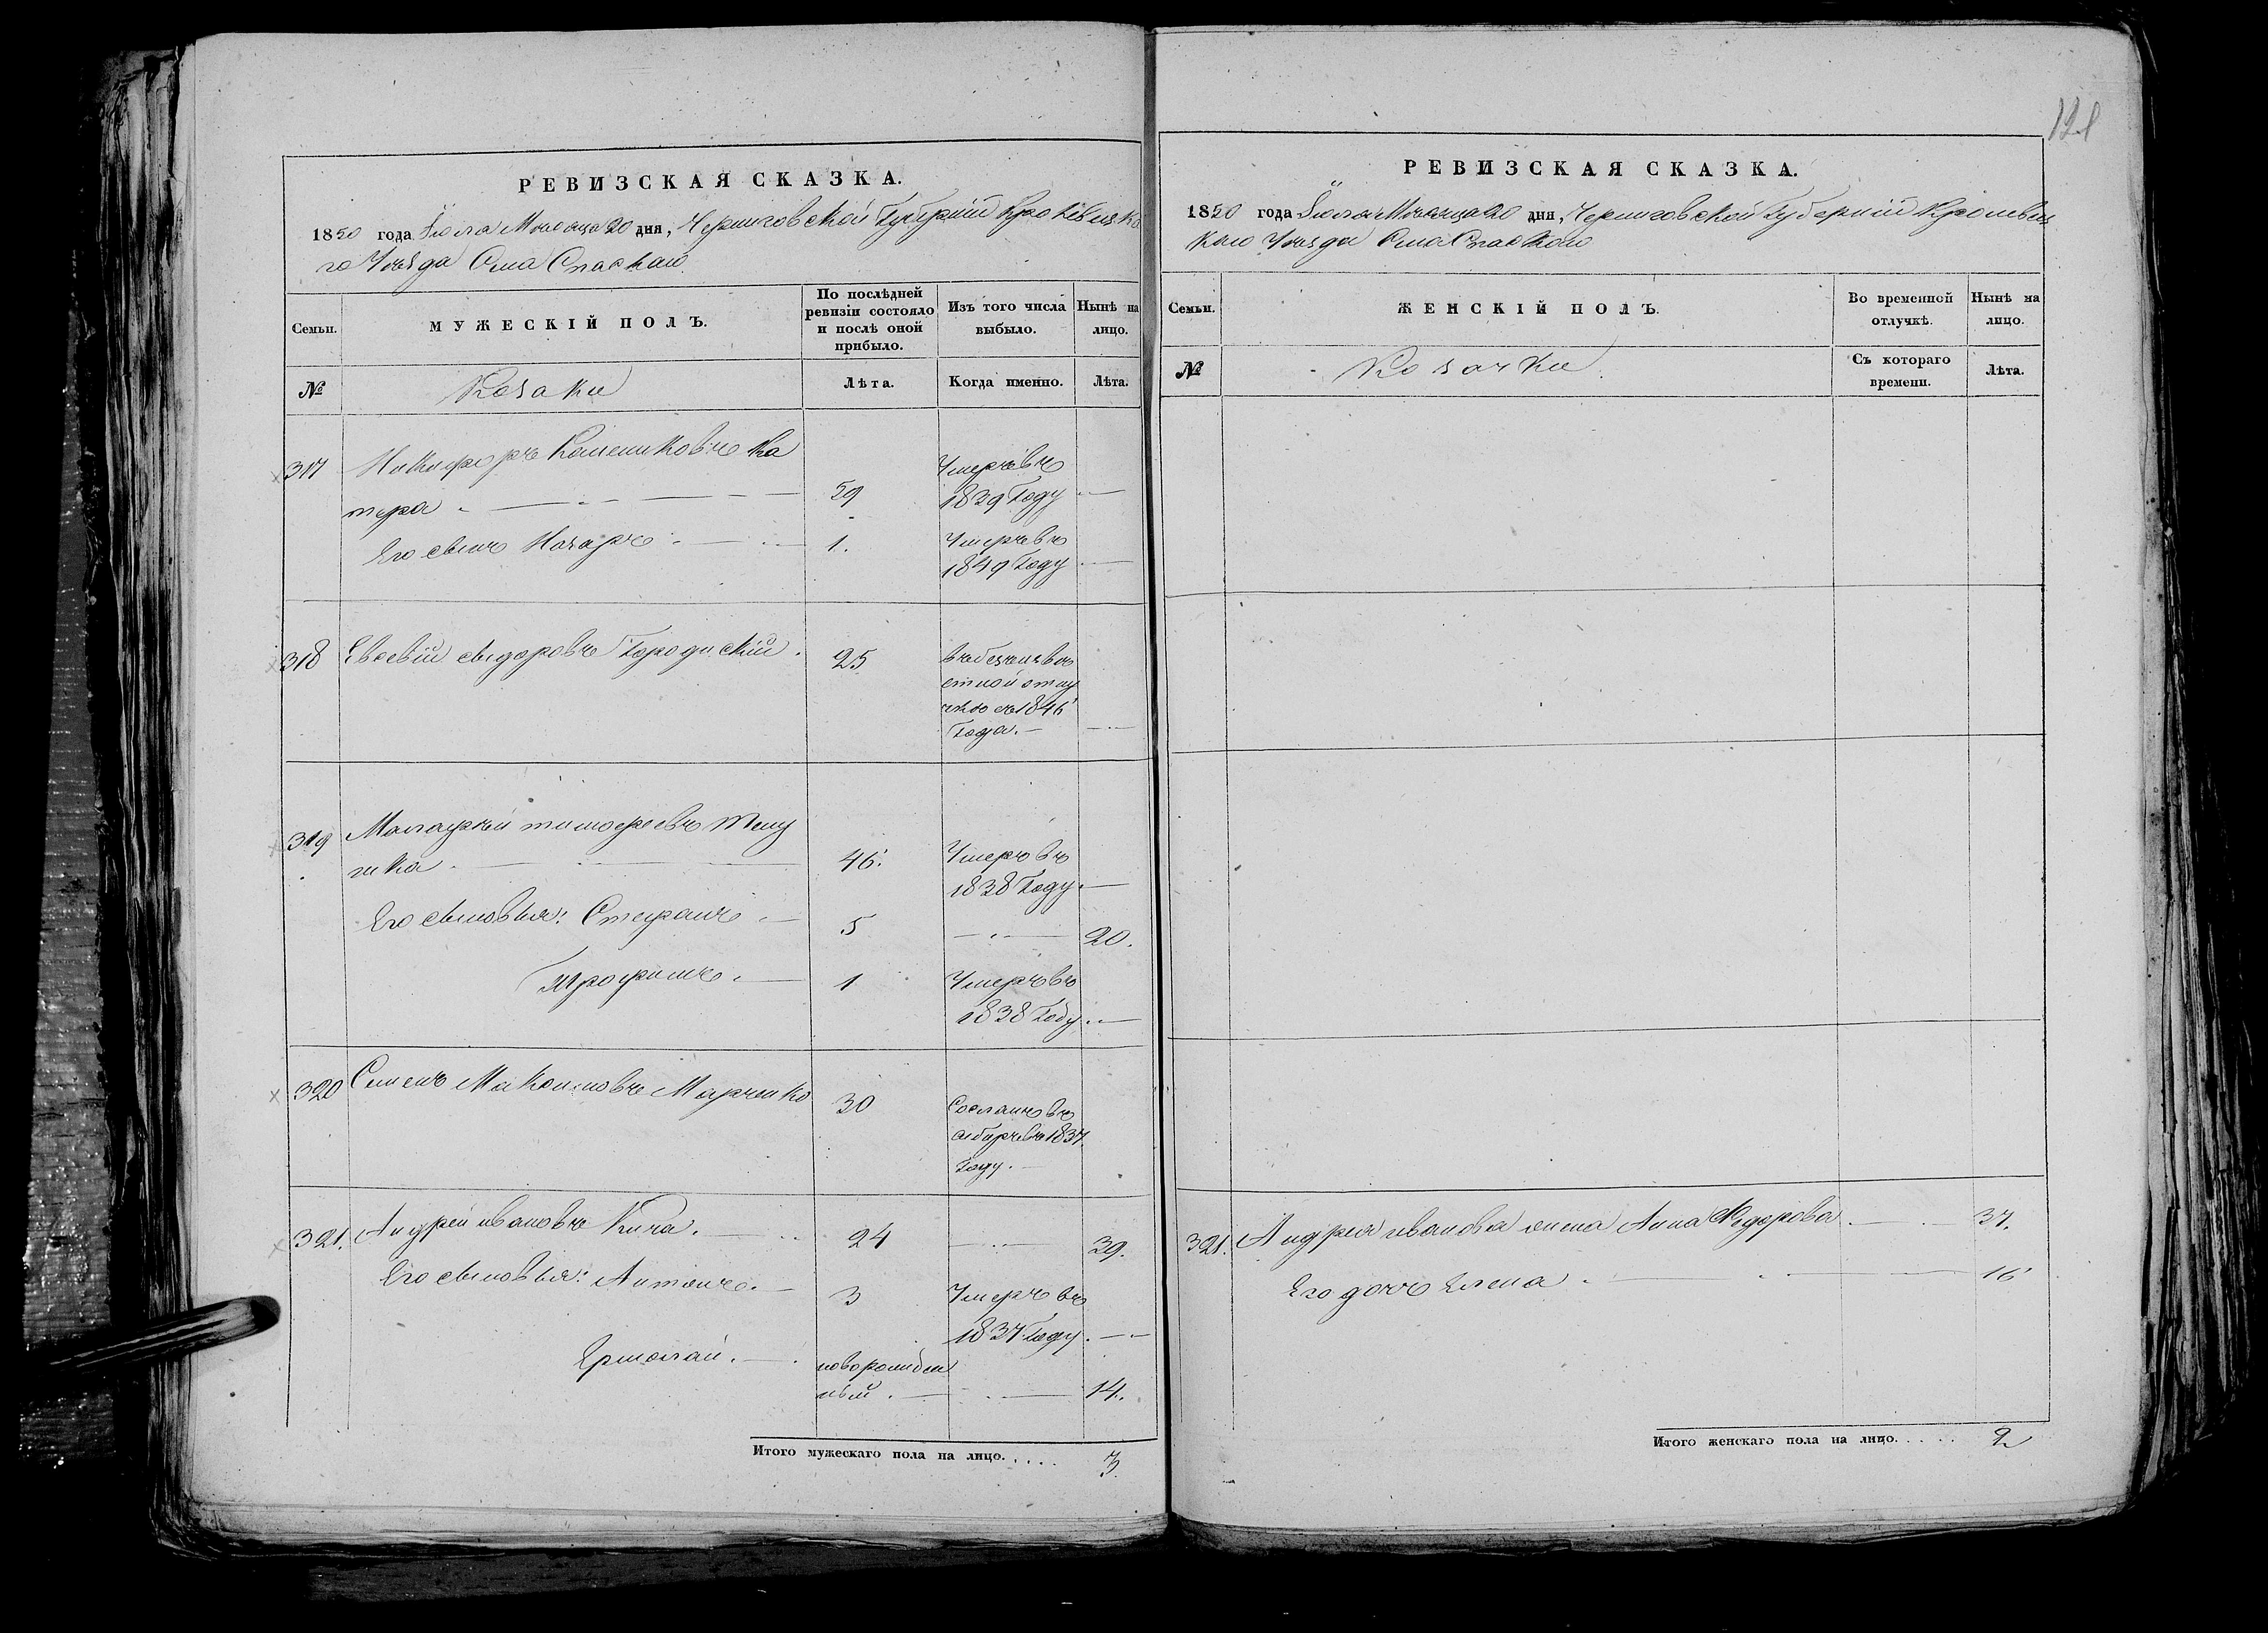 РЕВИЗСКАЯ СКАЗКА.
1850 года Iюля Месяца 20 дня, Черниговской Губернiи Кролевецка
го Уезда Села Спаскаго
Семьи.
МУЖЕСКIЙ ПОЛЪ.
По послѣдней
ревизiи состояло
и послѣ оной
прибыло.
Изъ того числа
выбыло.
Нынѣ на
лицо.
№
Козаки
Лѣта.
Когда именно.
Лѣта.
317 Никифоръ Ка
тера 59 Умеръ въ
1839 Году
Его сынъ Назаръ 1. Умеръ въ
1849 Году
318 Евсевiй сидоровъ Городискiй. 25 въ безъизвѣ
стной отлу
чке съ 1846
Года.
319 тимофеевъ
46. Умеръ въ
1838 Году
Его сыновья: Стефанъ 5 20.
Трофимъ 1 Умеръ въ
1838 Году
320 Семенъ Максимовъ Марченко 30 Сосланъ въ
сибирь въ 1837
Году.
321. Андрей ивановъ Кича. 24 39.
Его сыновья: Антонъ. 3 Умеръ въ
1837 Году
Ермолай. новорожден
ный. 14.
Итого мужескаго пола на лицо..... 3.
121
РЕВИЗСКАЯ СКАЗКА.
1850 года Iюля Месяца 20 дня, Черниговской Губернiи Кролевец
каго Уезда Села Спаскаго
Семьи.
ЖЕНСКIЙ ПОЛЪ.
Во временной
отлучкѣ.
Нынѣ на
лицо.
№
Козачки
Съ котораго
времени.
Лѣта.
321. Андрея иванова жена Анна Федорова 37.
Его дочь Елена 16
Итого женскаго пола на лицо..... 2